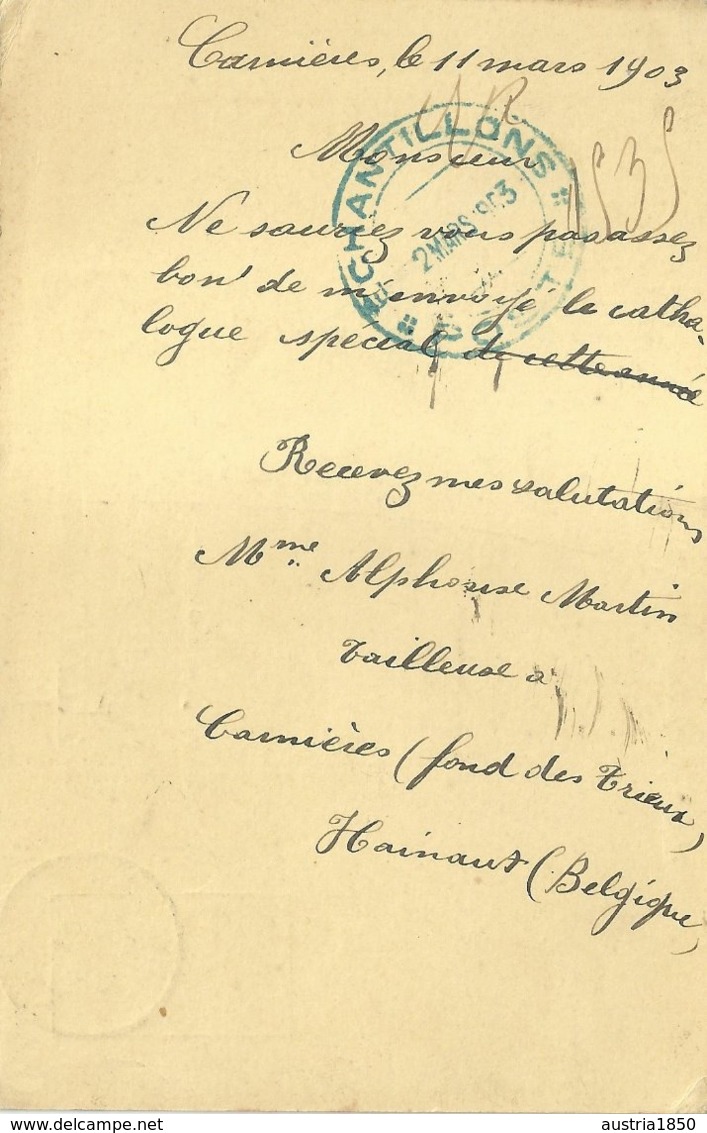 Carnières, le 11 mars 1903
Monsieur
ECHANTILLONS
2 MARS 1903
Ne sauriez vous pas assez
bon de m'envoyé le catha-
logue spécial de cette année
Recevez mes salutations
Mme Alphonse Martin
Tailleuse a
Carnières (fond des Trieux)
Hainaut (Belgique)
Delcampe.net
austria1850